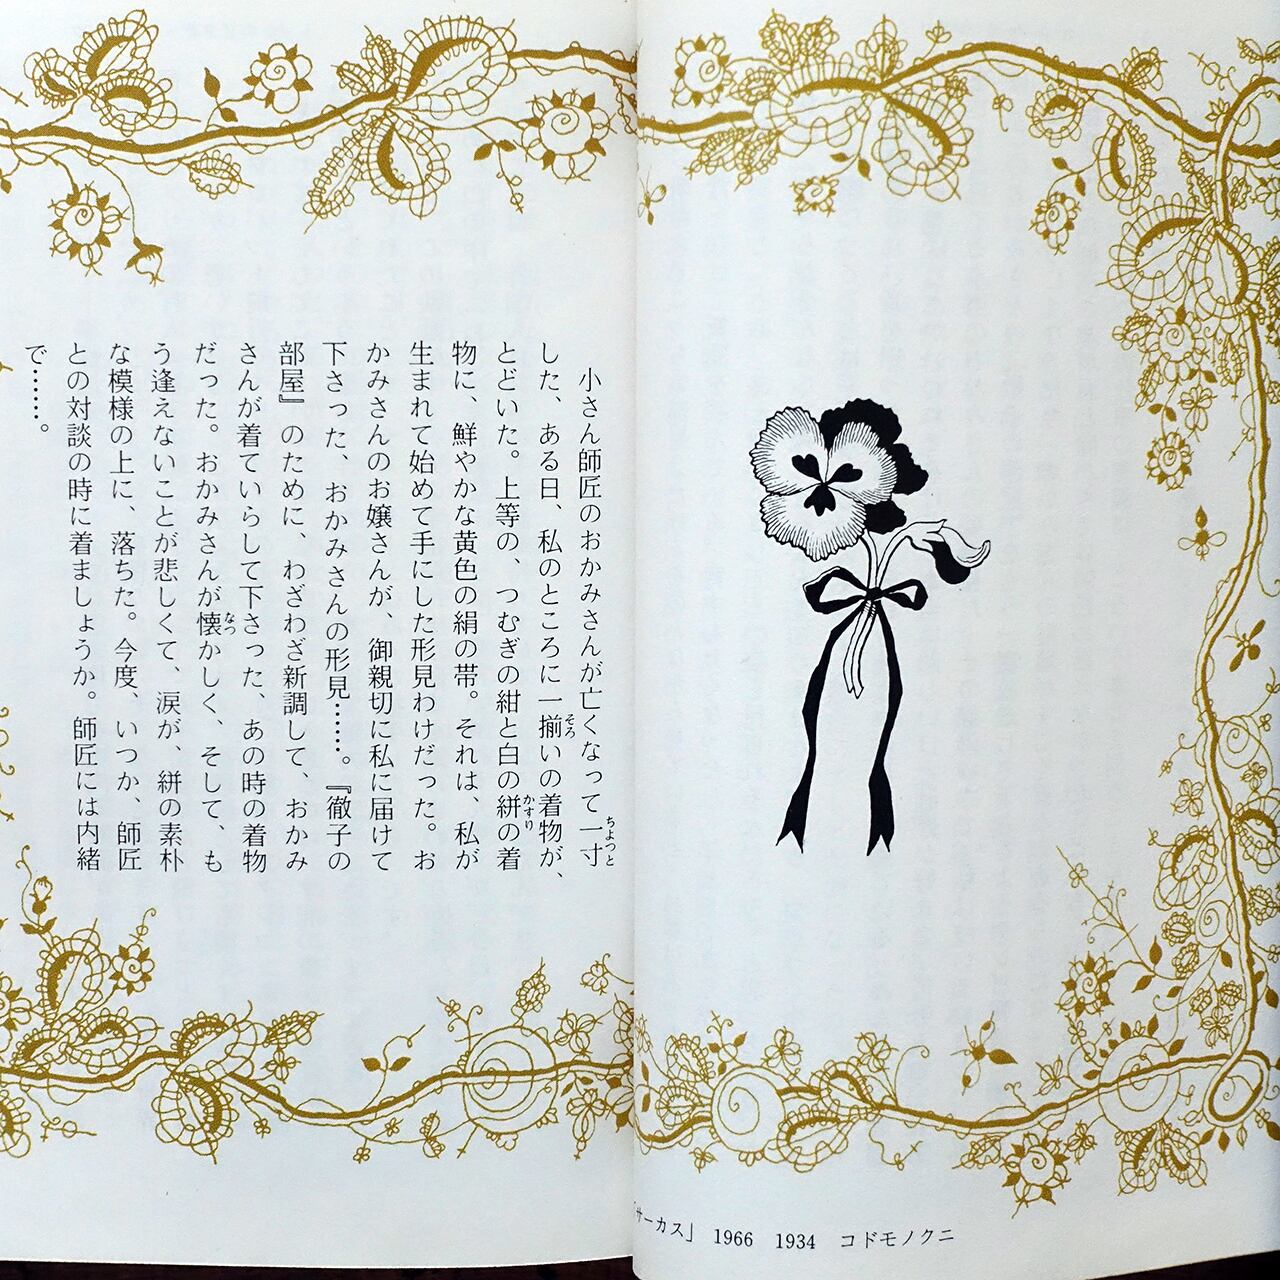 小さん師匠のおかみさんが亡くなって一寸
した、ある日、私のところに一揃いの着物が、
とどいた。上等の、つむぎの紺と白の絣の着
物に、鮮やかな黄色の絹の帯。それは、私が
生まれて始めて手にした形見わけだった。お
かみさんのお嬢さんが、御親切に私に届けて
下さった、おかみさんの形見……。『徹子の
部屋』のために、わざわざ新調して、おかみ
さんが着ていらして下さった、あの時の着物
だった。おかみさんが懐かしく、そして、も
う逢えないことが悲しくて、涙が、絣の素朴
な模様の上に、落ちた。今度、いつか、師匠
との対談の時に着ましょうか。師匠には内緒
で……。
「サーカス」 1966 1934 コドモノクニ